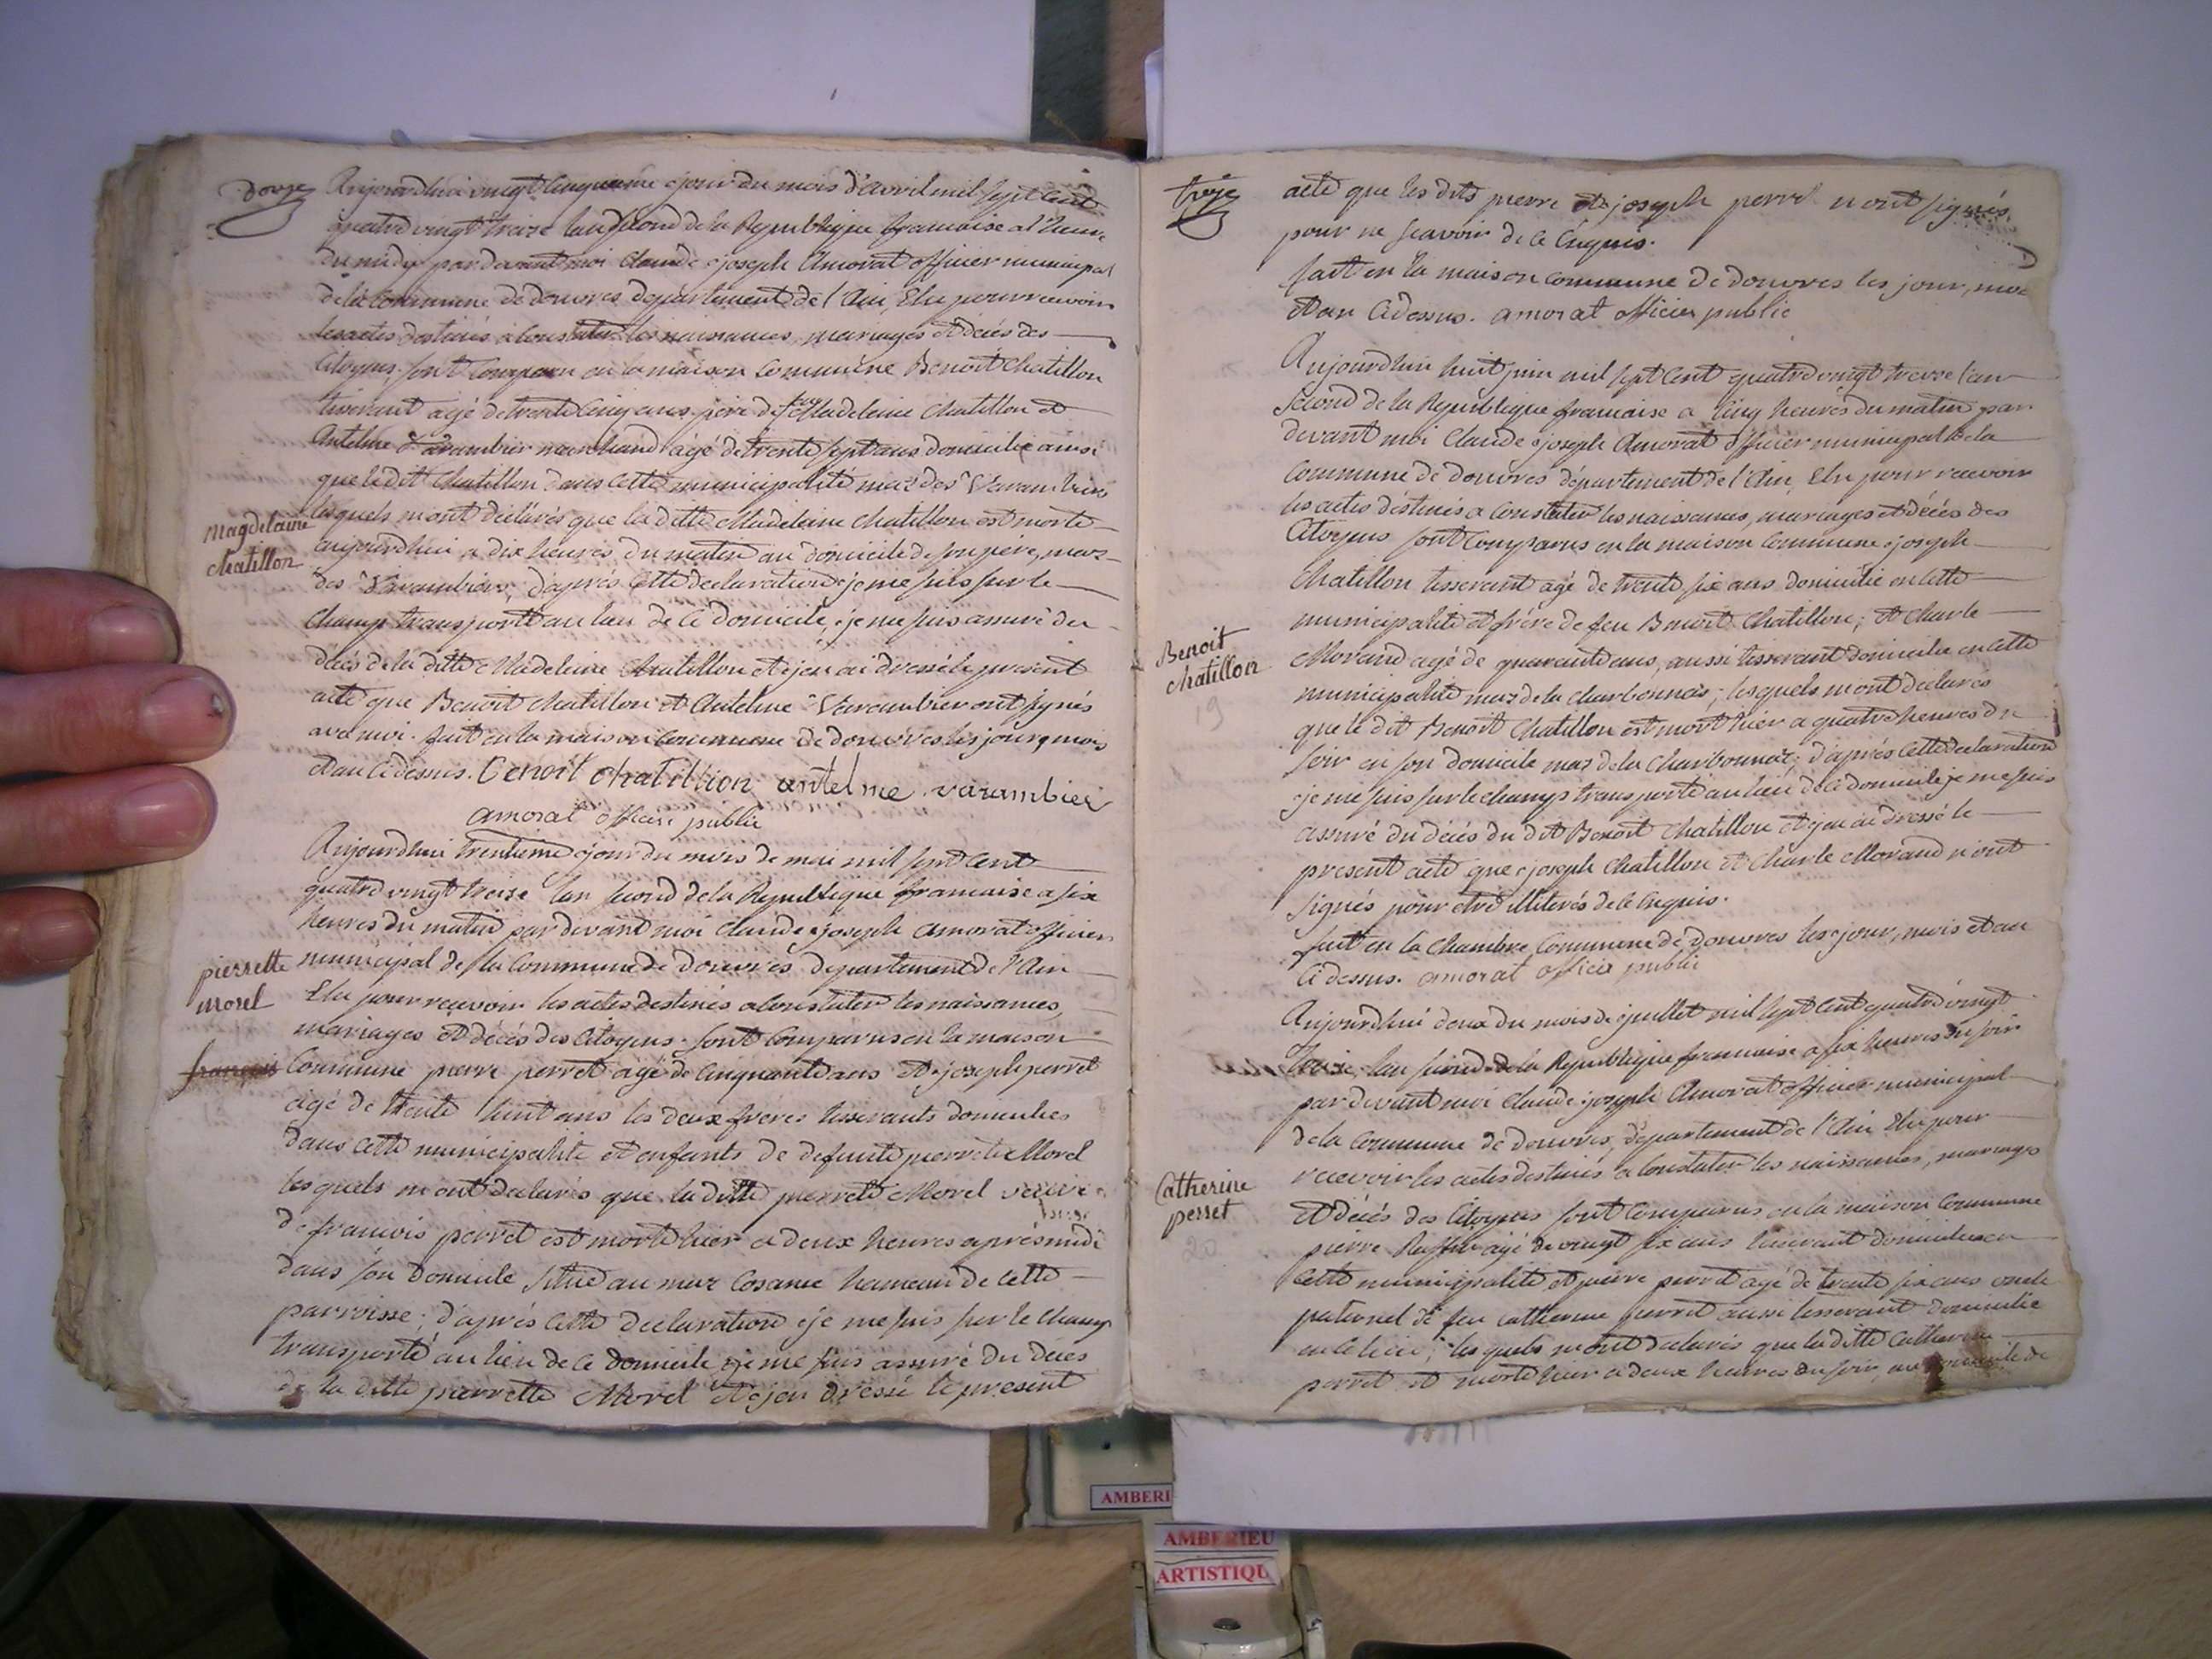 douze
Aujourdhui vingt cinquieme jour du mois d'avril mil sept cent
quatre vingt treize lan second de la Republique francaise a l'heure
du midy par devant moi Claude joseph Amorat officier municipal
de la Commune de douvres departement de l'Ain, Elu pour recevoir
les actes destinés a Constater les naissances, mariages et décés des
Citoyens sont Comparu en la maison Commune Benoit Chatillon
tisserant agé de trente cinq ans pere de Madeleine Chatillon et
Antelme Varambier marchand agé de trente sept ans domicilie ainsi
que le dit Chatillon dans cette municipalité maz des Varambier
lesquels m'ont déclarés que la ditte Madeleine Chatillon est morte
magdelaine
chatillon
aujourdhui a dix heures du matin au domicile de son pere, maz
des Varambier, d'aprés cette déclaration je me suis sur le
Champ transporté au lieu de ce domicile, je me suis assuré du
décés de la ditte Madeleine Chatillon et j'en ai dressé le present
acte que Benoit Chatillon et Antelme Varambier ont signés
avec moi. fait en la maison Commune de douvres les jour, mois
et an ci dessus. Benoit chatillion antelme varambier
amorat officier public
Aujourdhui trentieme jour du mois de mai mil sept cent
quatre vingt treize lan second de la Republique francaise a six
heures du matin par devant moi Claude joseph amorat officier
pierrette
morel
municipal de la Commune de douvres departement de l'Ain
Elu pour recevoir les actes destinés a Constater les naissances,
mariages et décés des Citoyens. sont Comparus en la maison
françois
Commune pierre perret agé de Cinquante ans et joseph perret
agé de trente huit ans les deux freres tisserants domicilies
dans cette municipalité et enfants de defunte pierrette Morel
lesquels m'ont declarés que la ditte pierrette Morel veuve
de francois perret est morte hier a deux heures aprés midi
dans son domicile situé au maz Cosance hameau de cette
parroisse; d'aprés cette declaration je me suis sur le Champ
transporté au lieu de ce domicile je me suis assuré du décés
de la ditte pierrette Morel et j'en dressé le present
treize
acte que les dits pierre et joseph perret n'ont signés
pour ne scavoir de ce Enquis.
fait en la maison commune de douvres les jour, mois
et an Cidessus. amorat officier public
Aujourdhui huit juin mil sept Cent quatre vingt treize l'an
second de la Republique francaise a cinq heures du matin par
devant moi Claude joseph Amorat officier municipal de la
Commune de douvres département de l'Ain, Elu pour recevoir
les actes destinés a Constater les naissances, mariages et décés des
Citoyens sont Comparus en la maison Commune joseph
Chatillon tisserant agé de trente six ans domicilié en cette
municipalité et frére de feu Benoit Chatillon; et Charle
Benoit
chatillon
19
Morand agé de quarante ans, aussi tisserant domicilie en cette
municipalité maz de la charbonnois; lesquels m'ont déclarés
que le dit Benoit Chatillon est mort hier a quatre heures du
soir en son domicile maz de la Charbonnois; d'aprés cette declaration
je me suis sur le champ transporté au lieu de ce domicile je me suis
assuré du décés du dit Benoit Chatillon et j'en ai dressé le
present acte que joseph Chatillon et Charle Morand n'ont
signés pour etre illiterés de ce Enquis.
fait en la Chambre Commune de douvres les jour, mois et an
Cidessus. amorat officier public
Aujourdhui deux du mois de juillet mil sept Cent quatre vingt
treize lan second de la Republique francaise a six heures du soir
par devant moi Claude joseph Amorat officier municipal
de la Commune de douvres, département de l'Ain Elu pour
recevoir les actes destinés a Constater les naissances, mariages
Catherine
perret
20
et décés des Citoyens sont Comparus en la maison Commune
pierre agé de vingt six ans tisserant domicilié en
cette municipalité et pierre perret agé de trente six ans oncle
paternel de feu Catherine perret aussi tisserant domicilié
en ce lieu; lesquels m'ont declarés que la ditte Catherine
perret est morte hier a deux heures du soir, au domicile de
AMBERI
AMBERIEU
ARTISTIQU